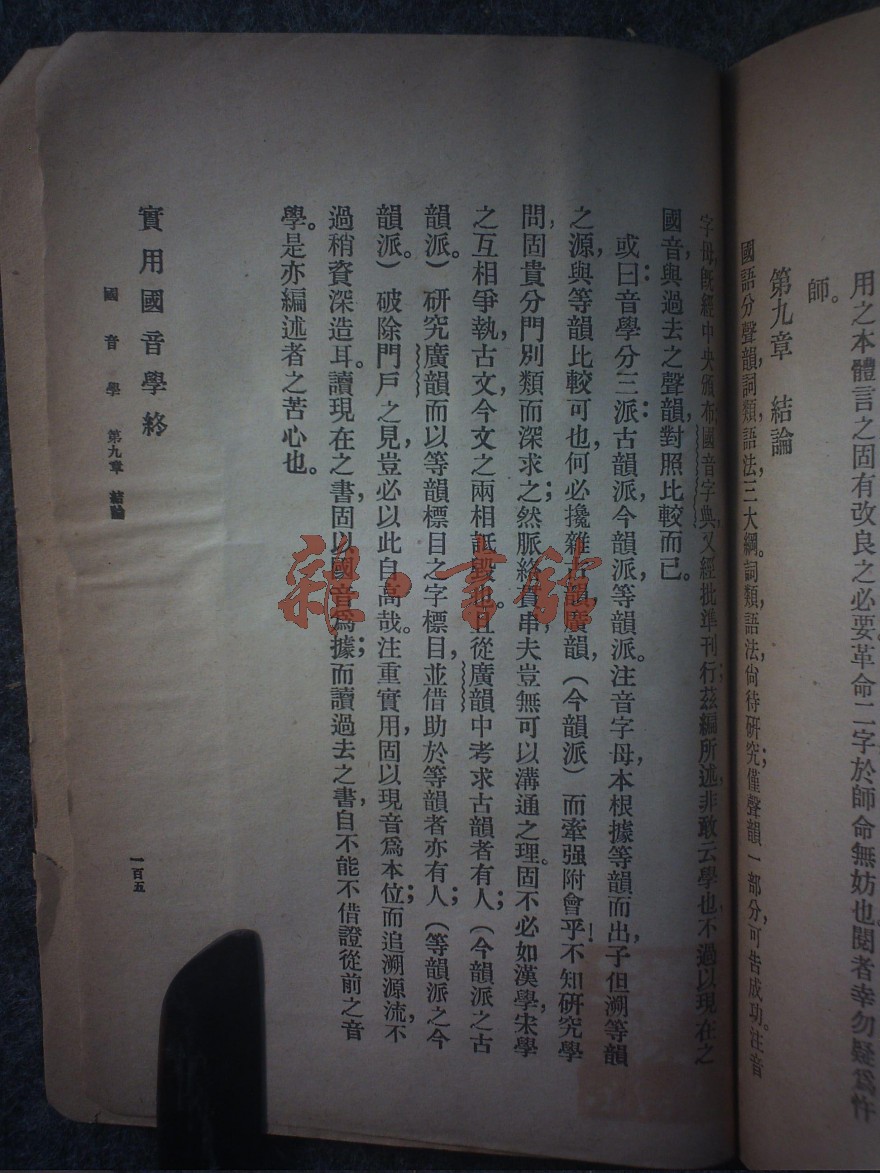 用之本體言之固有改良之必要。革命二字於師命無妨也。閱者幸勿疑爲忤
師。
第九章　結論
國語分聲韻，詞類，語法三大綱。詞類，語法，尙待研究；僅聲韻一部分，可告成功。注音
字母，旣經中央頒布；國音字典，又經批準刊行；茲編所述，非敢云學也，不過以現在之
國音，與過去之聲韻，對照比較而已。
或曰：音學分三派：古韻派，今韻派，等韻派。注音字母，本根據等韻而出，子但溯等韻
之源，與等韻比較可也，何必攙雜古韻，廣韻，（今韻派）而牽强附會乎！不知硏究學
問，固貴分門別類而深求之；然脈絡貫串，夫豈無可以溝通之理。固不必如漢學，宋學
之互相爭執，古文，今文之兩相詆毀也。且從廣韻中考求古韻者有人；（今韻派之古
韻派。）硏究廣韻而以等韻標目之字標目，並借助於等韻者亦有人；（等韻派之今
韻派。）破除門戶之見，豈必以此自高哉。注重實用，固以現音爲本位；而追溯源流，不
過稍資深造耳。讀現在之書，固以國音爲據；而讀過去之書，自不能不借證從前之音
學。是亦編述者之苦心也。
實用國音學終
國音學　第九章　結論
一百五
雜·書館